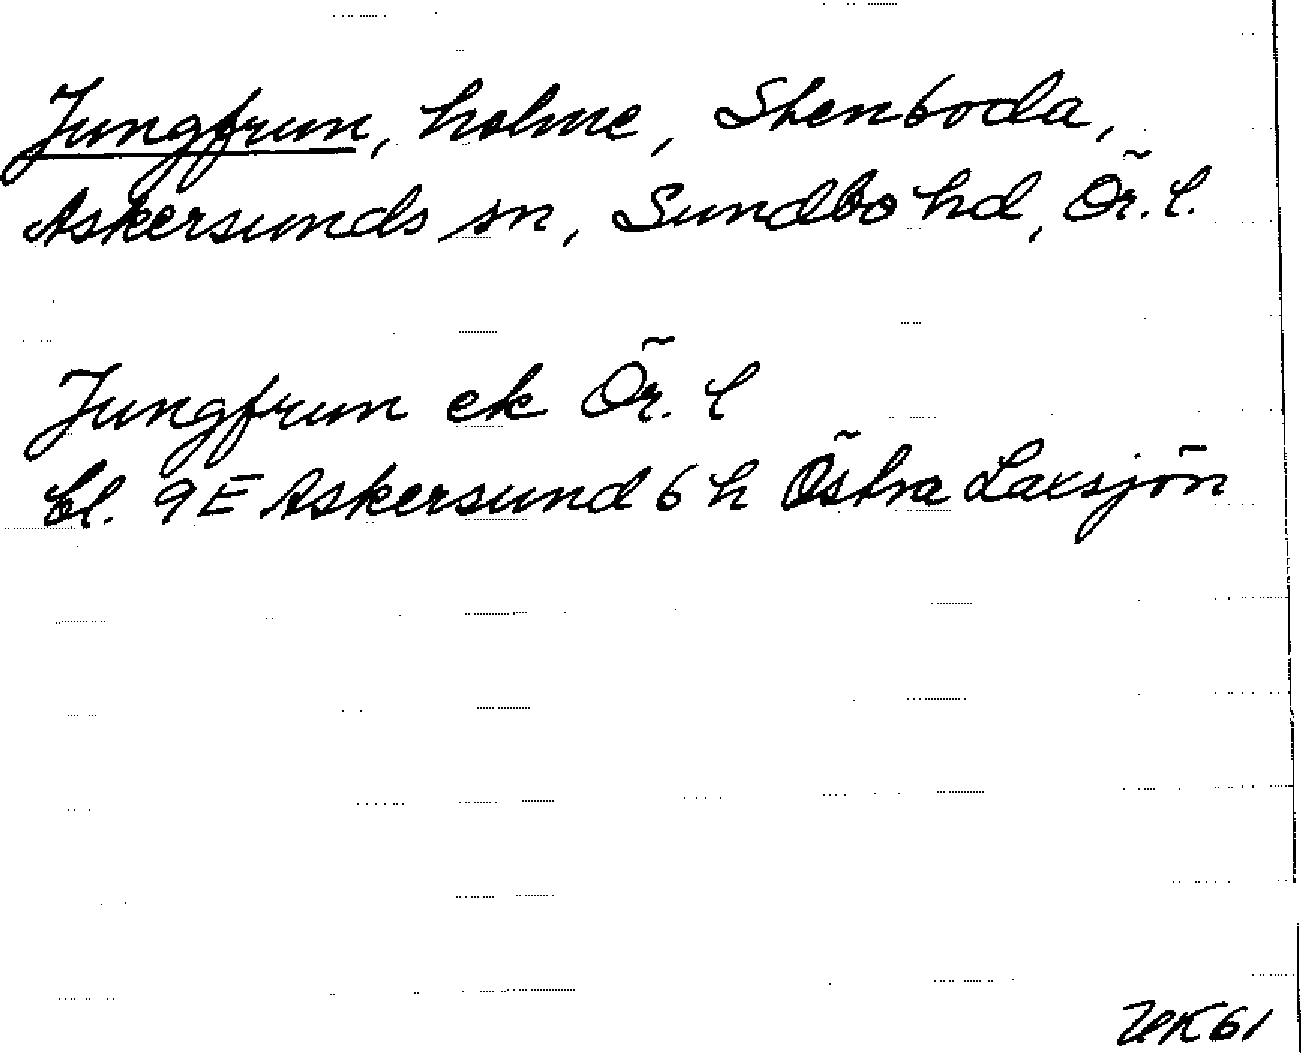 Jungfrun, holme, Stenboda,
Askersunds sn, Sundbo hd, Ör. l.
Jungfrun ek Ör. l
bl. 9E Askersund 6 h Östra Laxsjön
UK61